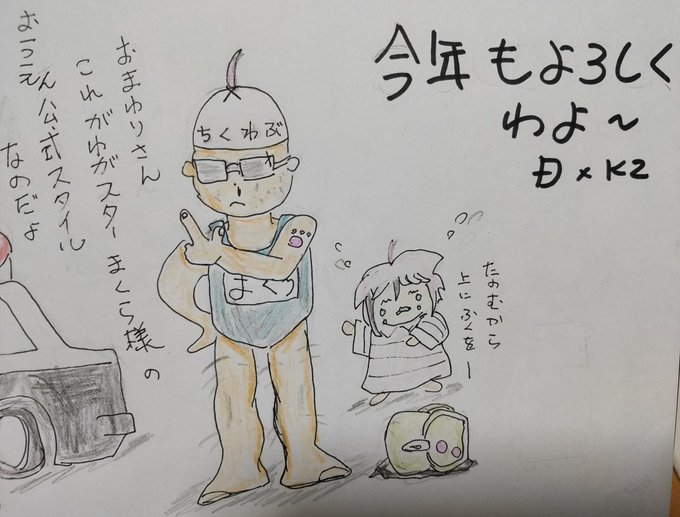 今年もよろしく
わよ～
ちくわぶ
おまゆりさん
これがゆがスターまくら様の
おうえん公式スタイル
なのだよ
まく
たのむから
上にふくをー